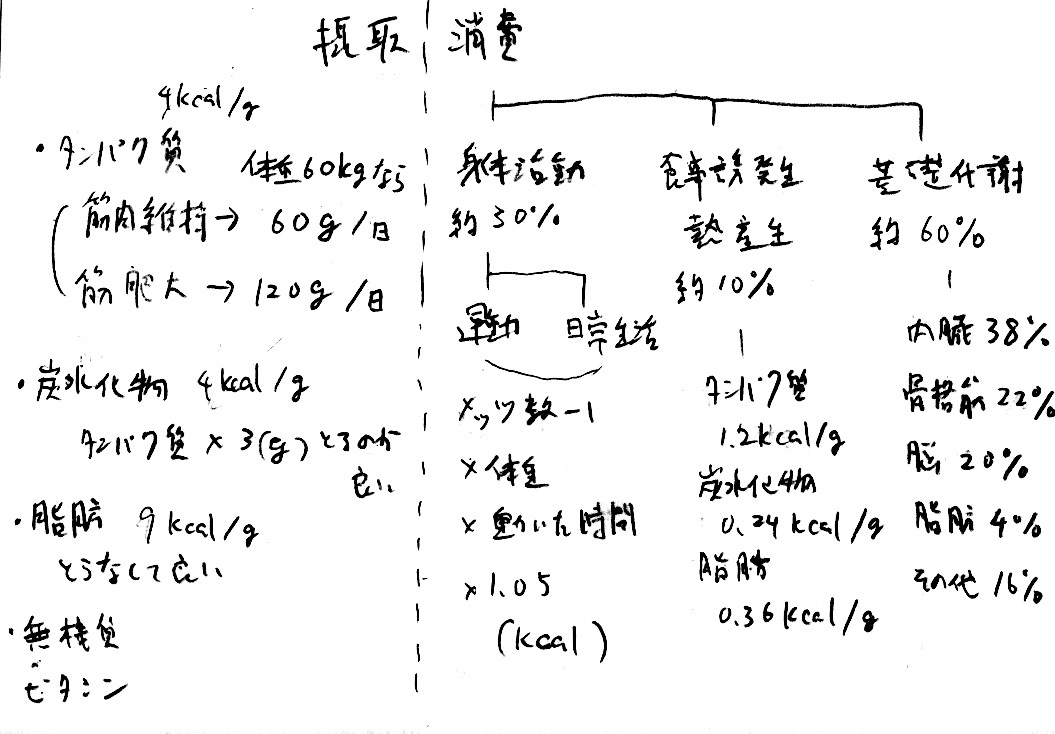 摂取
4kcal/g
・タンパク質
体重60kgなら
筋肉維持→ 60g/日
筋肥大 → 120g/日
・炭水化物 4kcal/g
タンパク質 × 3(g) とるのが
良い
・脂肪 9kcal/g
とらなくて良い
・無機質
ビタミン
消費
身体活動
約30%
運動 日常生活
メッツ数-1
×体重
×動いた時間
×1.05
(kcal)
食事誘発生
熱産生
約10%
タンパク質
1.2kcal/g
炭水化物
0.24kcal/g
脂肪
0.36kcal/g
基礎代謝
約60%
内臓38%
骨格筋22%
脳20%
脂肪4%
その他16%